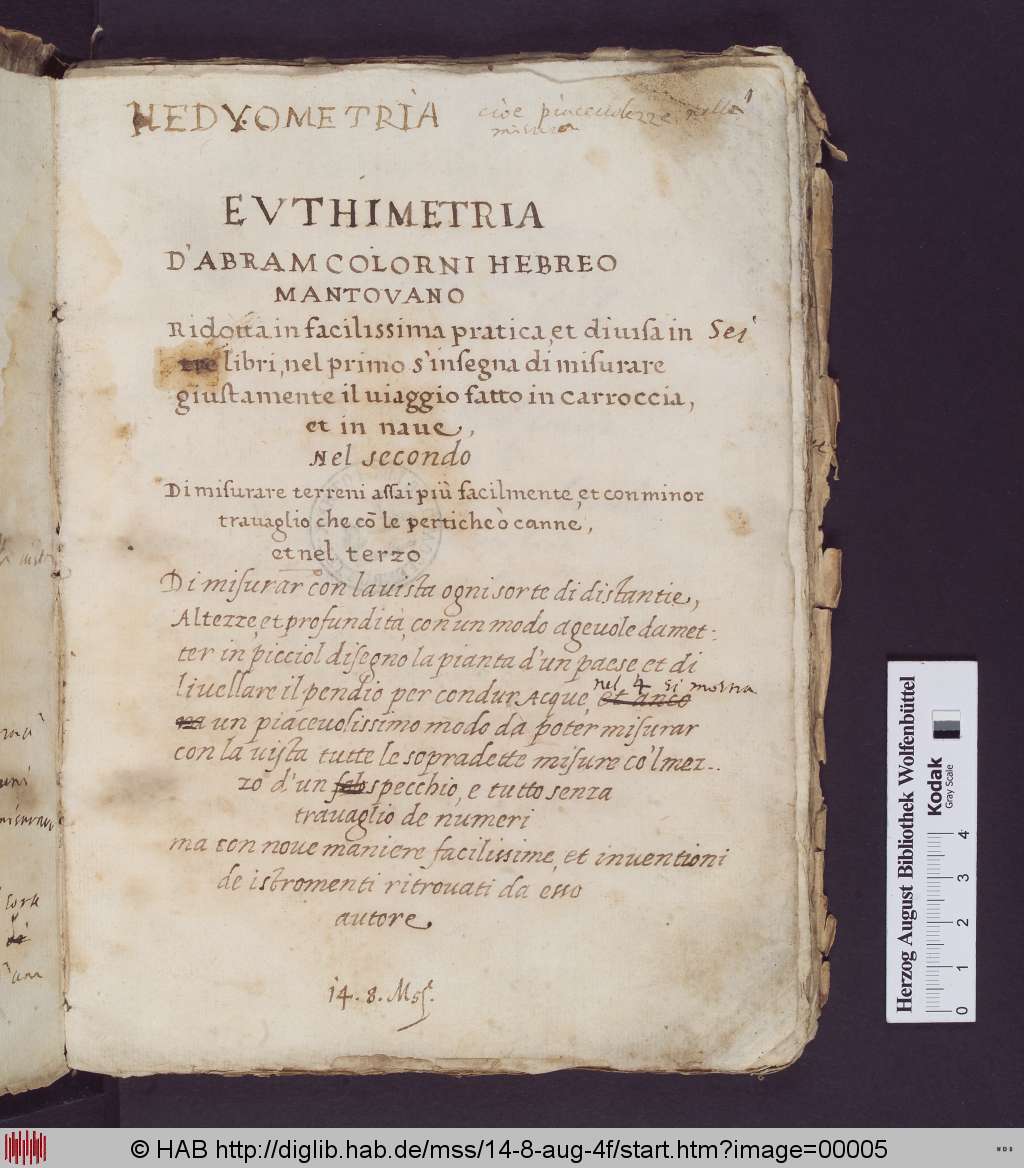 HEDYOMETRIA
cioe piaceuolezze nella
misura
1
EVTHIMETRIA
D'ABRAM COLORNI HEBREO
MANTOVANO
Ridotta in facilissima pratica, et diuisa in Sei
tre libri, nel primo s'insegna di misurare
giustamente il uiaggio fatto in carroccia,
et in naue,
Nel secondo
Di misurare terreni assai più facilmente, et con minor
trauaglio che cō le pertiche ò canne,
et nel terzo
Di misurar con la uista ogni sorte di distantie,
Altezze, et profundità, con un modo ageuole da met-
ter in picciol disegno la pianta d'un paese et di
nel 4 si mostra
liuellare il pendio per condur Acque, et anco
ra un piaceuolissimo modo da poter misurar
con la uista tutte le sopradette misure co'l mez-
zo d'un specchio, e tutto senza
trauaglio de numeri
ma con noue maniere facilissime, et inuentioni
de istromenti ritrouati da esso
autore
14. 8. Msſ.
Herzog August Bibliothek Wolfenbüttel
Kodak
Gray Scale
0 1 2 3 4
© HAB http://diglib.hab.de/mss/14-8-aug-4f/start.htm?image=00005